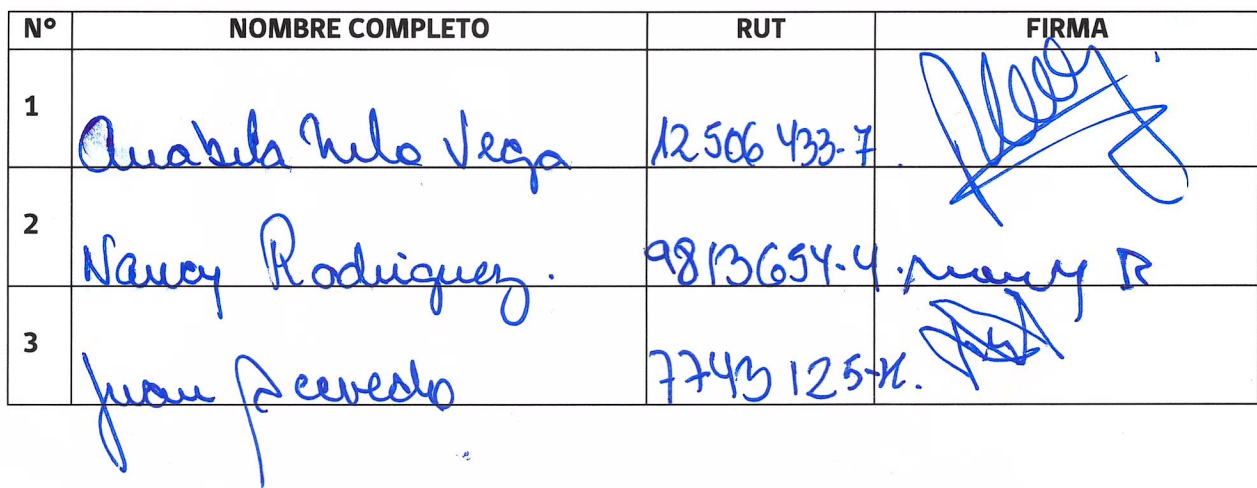 N° NOMBRE COMPLETO RUT FIRMA
1 Anabela Milo Vega 12506433-7
2 Nancy Rodriguez. 9813654-4. Nancy R
3 Juan Acevedo 7743125-K.